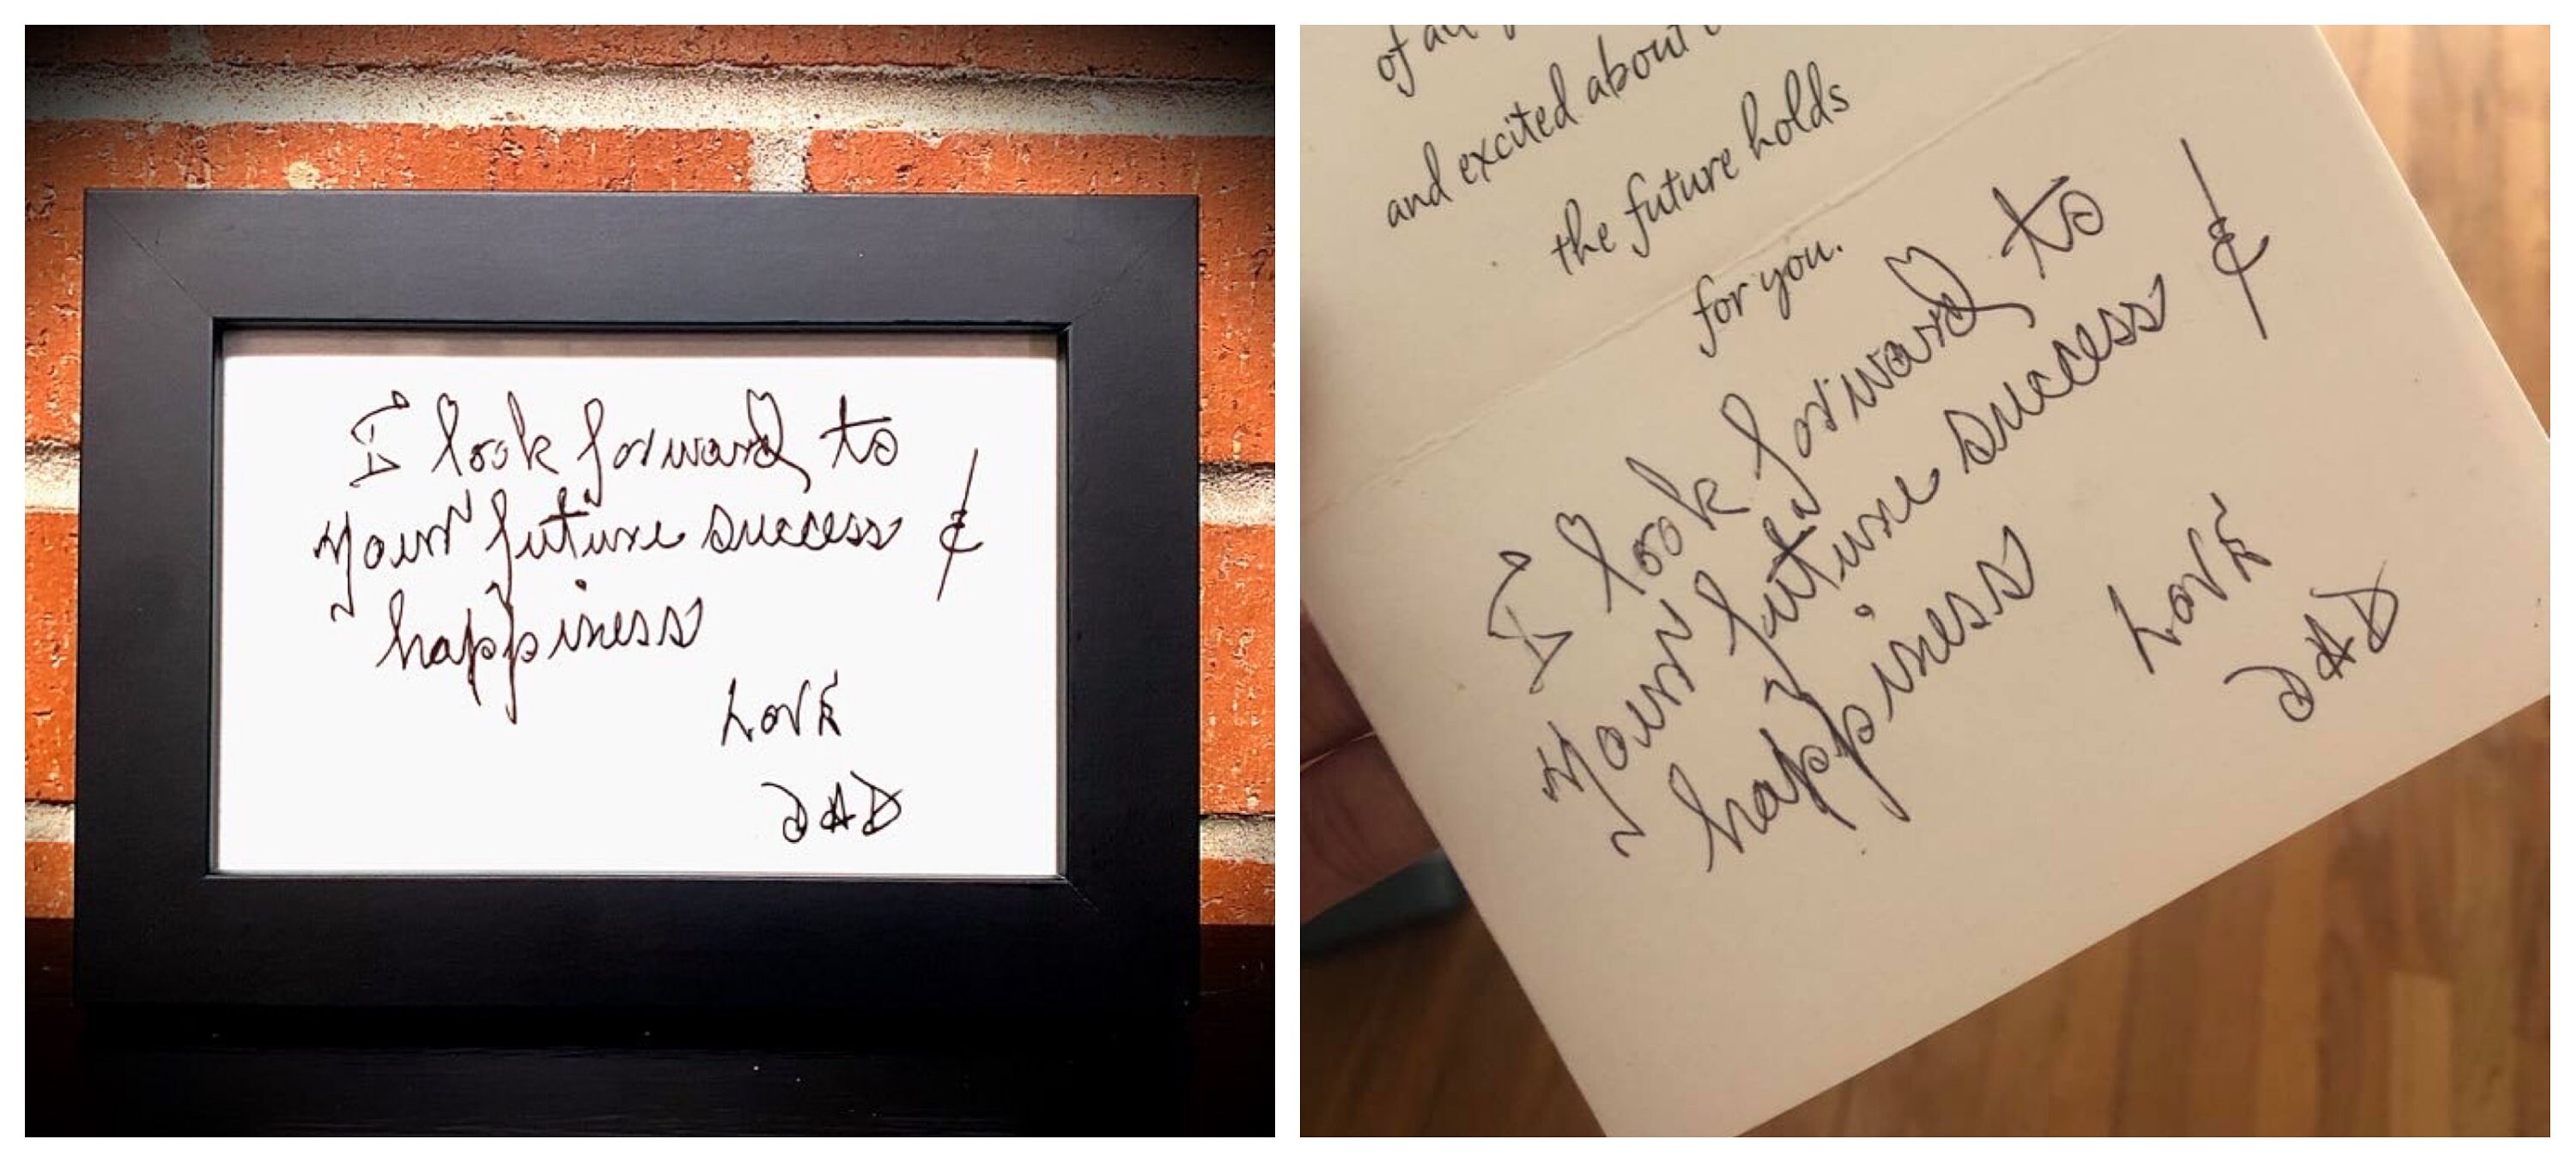 I look forward to
your future success &
happiness
Love
DAD
of all
and excited about
the future holds
for you.
I look forward to
your future success &
happiness
Love
DAD